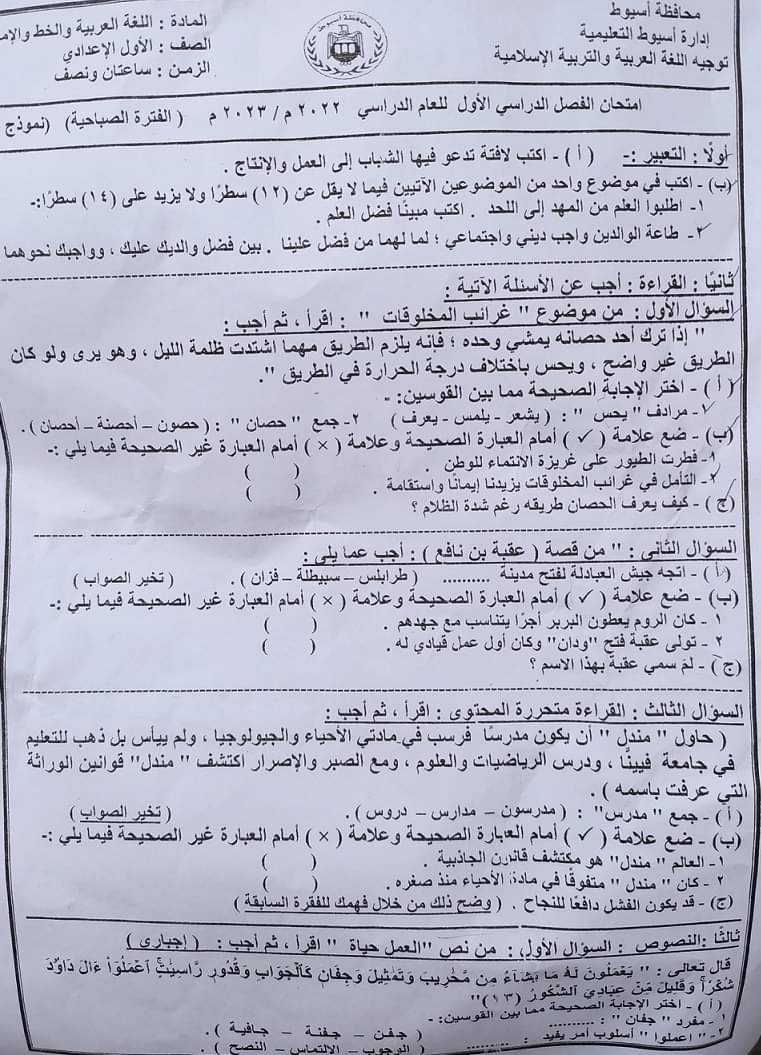 محافظة أسيوط
إدارة أسيوط التعليمية
توجيه اللغة العربية والتربية الإسلامية
محافظة أسيوط
المادة : اللغة العربية والخط والإم
الصف : الأول الإعدادي
الزمن : ساعتان ونصف
امتحان الفصل الدراسي الأول للعام الدراسي ٢٠٢٢ م / ٢٠٢٣ م ( الفترة الصباحية ) (نموذج
أولًا : التعبير :- ( أ ) - اكتب لافتة تدعو فيها الشباب إلى العمل والإنتاج .
(ب) - اكتب في موضوع واحد من الموضوعين الآتيين فيما لا يقل عن (١٢) سطرًا ولا يزيد على (١٤) سطرًا:-
١- اطلبوا العلم من المهد إلى اللحد . اكتب مبينًا فضل العلم .
٢- طاعة الوالدين واجب ديني واجتماعي ؛ لما لهما من فضل علينا . بين فضل والديك عليك ، وواجبك نحوهما
ثانيًا : القراءة : أجب عن الأسئلة الآتية :
السؤال الأول : من موضوع " غرائب المخلوقات " : اقرأ ، ثم أجب :
" إذا ترك أحد حصانه يمشي وحده ؛ فإنه يلزم الطريق مهما اشتدت ظلمة الليل ، وهو يرى ولو كان
الطريق غير واضح ، ويحس باختلاف درجة الحرارة في الطريق ".
( أ ) - اختر الإجابة الصحيحة مما بين القوسين: -
١- مرادف " يحس " : ( يشعر - يلمس - يعرف ) ٢- جمع " حصان " : ( حصون – أحصنة – أحصان ) .
(ب) - ضع علامة ( ✓ ) أمام العبارة الصحيحة وعلامة ( × ) أمام العبارة غير الصحيحة فيما يلي :-
١- فطرت الطيور على غريزة الانتماء للوطن . ( )
٢- التأمل في غرائب المخلوقات يزيدنا إيمانًا واستقامة . ( )
(ج ) - كيف يعرف الحصان طريقه رغم شدة الظلام ؟
السؤال الثاني : " من قصة ( عقبة بن نافع ) : أجب عما يلي :
( أ ) - اتجه جيش العبادلة لفتح مدينة .......... ( طرابلس – سبيطلة – فزان ) . ( تخير الصواب )
(ب) - ضع علامة ( ✓ ) أمام العبارة الصحيحة وعلامة ( × ) أمام العبارة غير الصحيحة فيما يلي :-
١ - كان الروم يعطون البربر أجرًا يتناسب مع جهدهم . ( )
٢ - تولى عقبة فتح "ودان" وكان أول عمل قيادي له . ( )
(ج ) - لم سمي عقبة بهذا الاسم ؟
السؤال الثالث : القراءة متحررة المحتوى : اقرأ ، ثم أجب :
( حاول " مندل " أن يكون مدرسًا فرسب في مادتي الأحياء والجيولوجيا ، ولم ييأس بل ذهب للتعليم
في جامعة فيينَّا ، ودرس الرياضيات والعلوم ، ومع الصبر والإصرار اكتشف " مندل" قوانين الوراثة
التي عرفت باسمه ) .
( أ ) - جمع " مدرس" : ( مدرسون – مدارس – دروس ) . ( تخير الصواب )
(ب) - ضع علامة ( ✓ ) أمام العبارة الصحيحة وعلامة ( × ) أمام العبارة غير الصحيحة فيما يلي :-
١- العالم " مندل" هو مكتشف قانون الجاذبية . ( )
٢ - كان " مندل " متفوقًا في مادة الأحياء منذ صغره . ( )
(ج) - قد يكون الفشل دافعًا للنجاح . ( وضح ذلك من خلال فهمك للفقرة السابقة )
ثالثًا :النصوص : السؤال الأول : من نص "العمل حياة " اقرأ ، ثم أجب : ( إجباري )
قال تعالى : " يَعْمَلُونَ لَهُ مَا يَشَآءُ مِن مَّحَٰرِيبَ وَتَمَٰثِيلَ وَجِفَانٍ كَٱلْجَوَابِ وَقُدُورٍ رَّاسِيَٰتٍۚ ٱعْمَلُوٓاْ ءَالَ دَاوُۥدَ
شُكْرًاۚ وَقَلِيلٌ مِّنْ عِبَادِيَ ٱلشَّكُورُ (١٣)"
( أ ) - اختر الإجابة الصحيحة مما بين القوسين: -
١ - مفرد " جفان " : .......... ( جفن – جفنة – جافية ) .
٢- " اعملوا " أسلوب أمر يفيد : .......... ( الوجوب – الالتماس – النصح ) .